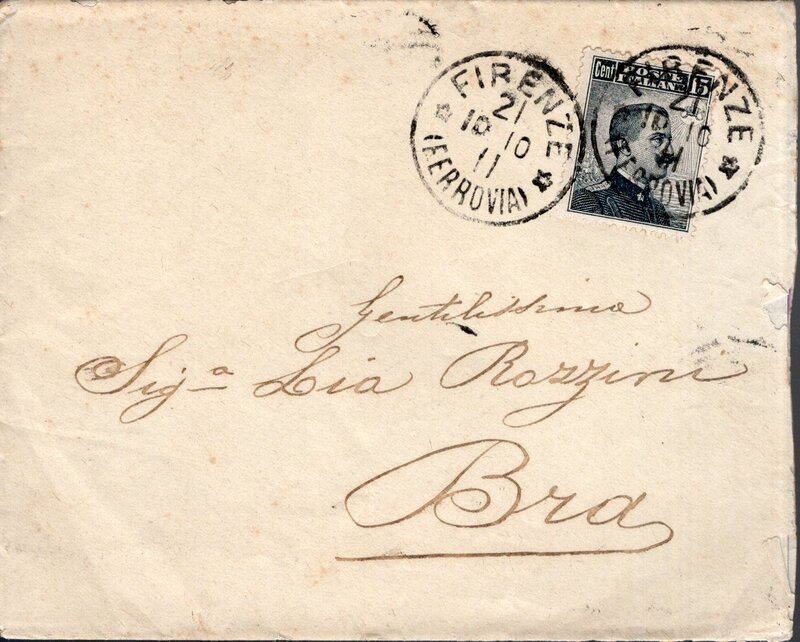 FIRENZE
21
18 10
11
(FERROVIA)
Cent POSTE 15
ITALIANE
FIRENZE
21
18 10
11
(FERROVIA)
Gentilissima
Sig.a Lia Rozzini
Bra